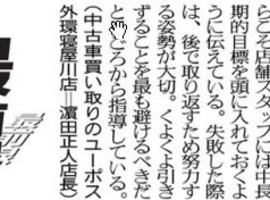 らこそ店舗スタッフには中長
期的目標を頭に入れておくよ
うに伝えている。失敗した際
は、後で取り返すため努力す
る姿勢が大切。くよくよ引き
ずることを最も避けるべきだ
と ころから指導している。
（中古車買い取りのユーポス
外環寝屋川店＝濵田正人店長）